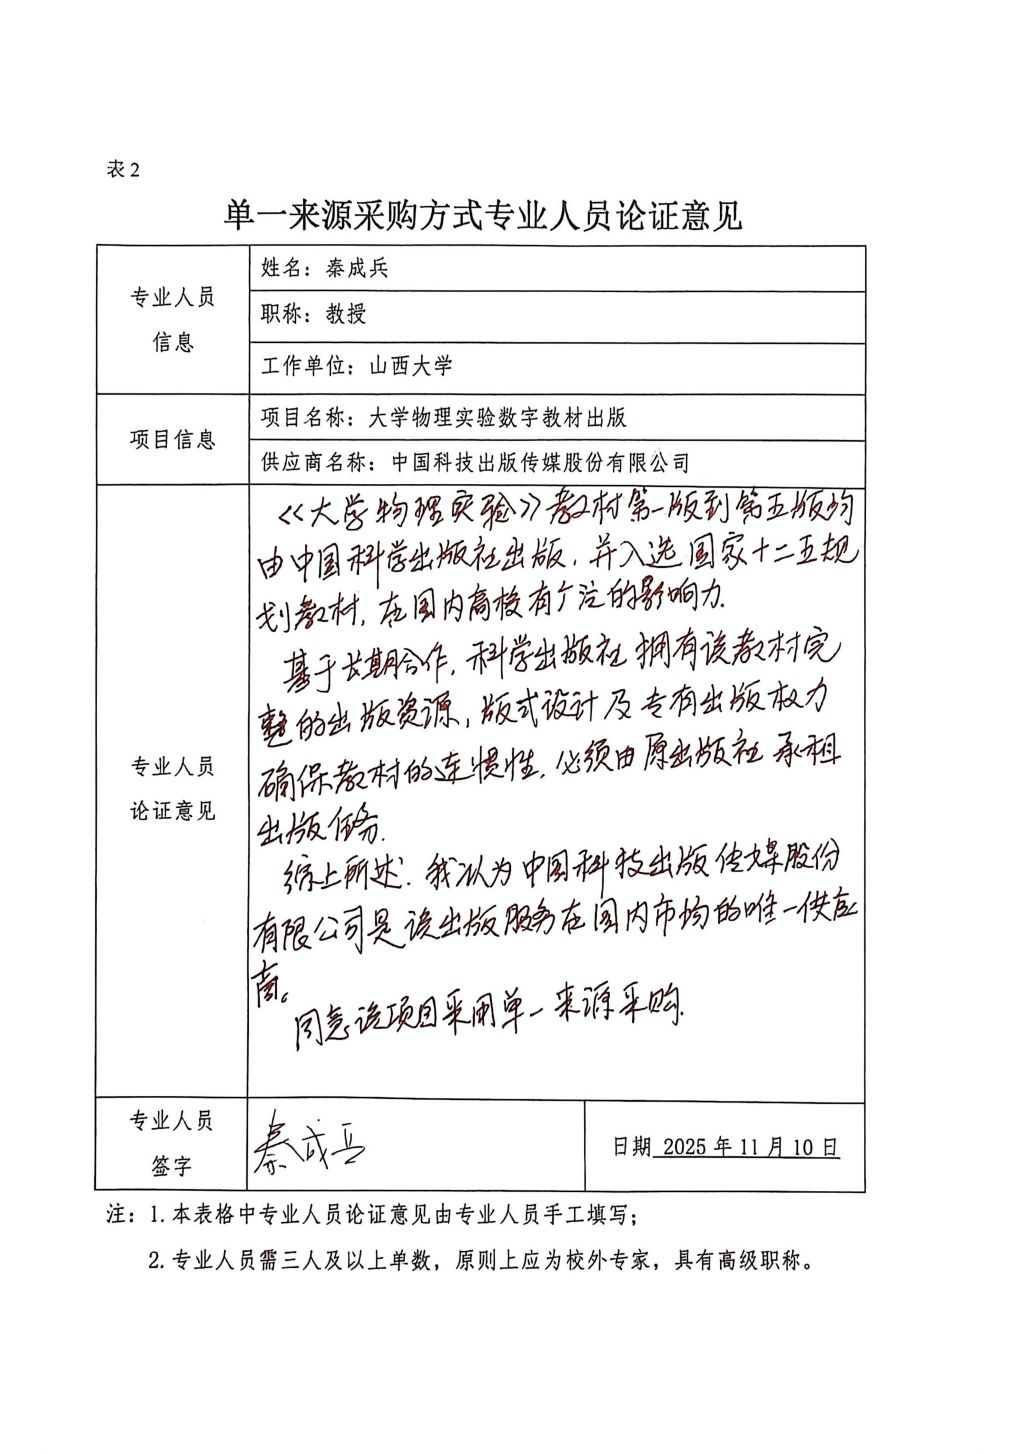 表2
单一来源采购方式专业人员论证意见
专业人员
信息
姓名：秦成兵
职称：教授
工作单位：山西大学
项目信息
项目名称：大学物理实验数字教材出版
供应商名称：中国科技出版传媒股份有限公司
专业人员
论证意见
《大学物理实验》教材第一版到第五版均
由中国科学出版社出版，并入选国家十二五规
划教材，在国内高校有广泛的影响力.
基于长期合作，科学出版社拥有该教材完
整的出版资源，版式设计及专有出版权力
确保教材的连惯性，必须由原出版社承担
出版任务.
综上所述.我认为中国科技出版传媒股份
有限公司是该出版服务在国内市场的唯一供应
商。
同意该项目采用单一来源采购.
专业人员
签字
秦成兵
日期 2025年11月10日
注：1.本表格中专业人员论证意见由专业人员手工填写；
2.专业人员需三人及以上单数，原则上应为校外专家，具有高级职称。